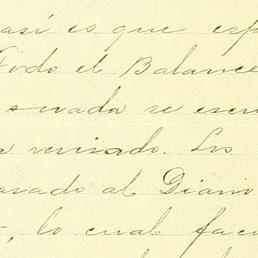 así es que esp
Todo el Balance
se escri
revisado. Los
pasado al Diario
, lo cual fac